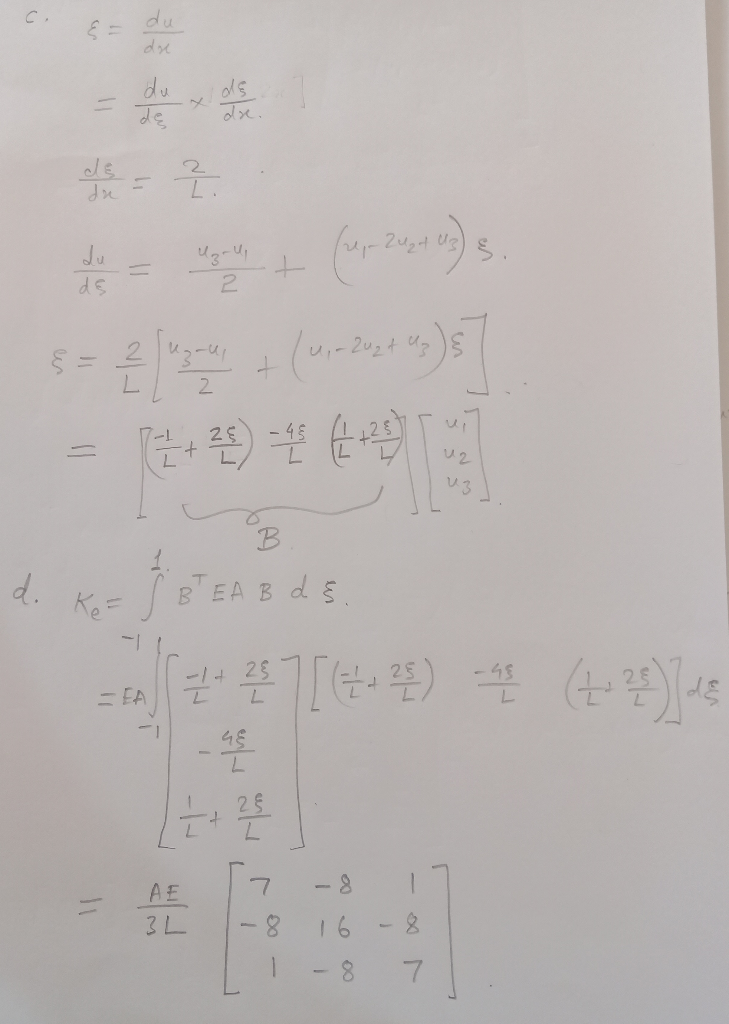 c. ξ = du/dx
= du/dξ × dξ/dx.
dξ/dx = 2/L.
du/dξ = (u₃-u₁)/2 + (u₁-2u₂+u₃) ξ.
ξ = 2/L [(u₃-u₁)/2 + (u₁-2u₂+u₃)ξ].
= [(-1/L + 2ξ/L) -4ξ/L (1/L + 2ξ/L)] [u₁ u₂ u₃].
B
d. Kₑ = ∫₋₁¹ Bᵀ EA B dξ.
= EA ∫₋₁¹ [-1/L + 2ξ/L  -4ξ/L  1/L + 2ξ/L] [(-1/L + 2ξ/L) -4ξ/L (1/L + 2ξ/L)] dξ
= AE/3L [7 -8 1
-8 16 -8
1 -8 7].